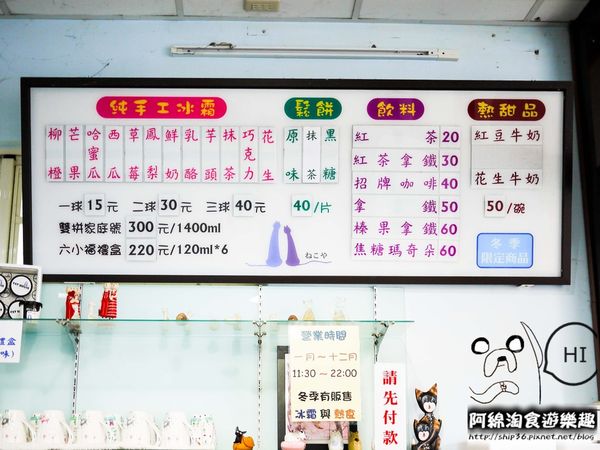 純手工冰霜
鬆餅
飲料
熱甜品
柳橙 芒果 哈蜜瓜 西瓜 草莓 鳳梨 鮮奶 乳酪 芋頭 抹茶 巧克力 花生
原味 抹茶 黑糖
紅茶20
紅茶拿鐵30
招牌咖啡40
拿鐵50
榛果拿鐵60
焦糖瑪奇朵60
紅豆牛奶
花生牛奶
一球15元 二球30元 三球40元
40/片
50/碗
雙拼家庭號300元/1400ml
六小福禮盒220元/120ml*6
ねこや
冬季
限定商品
禮盒
味)
營業時間
一月～十二月
11:30～22:00
冬季有販售
冰霜與熱食
請先付款
HI
阿綿淘食遊樂趣
http://ship36.pixnet.net/blog